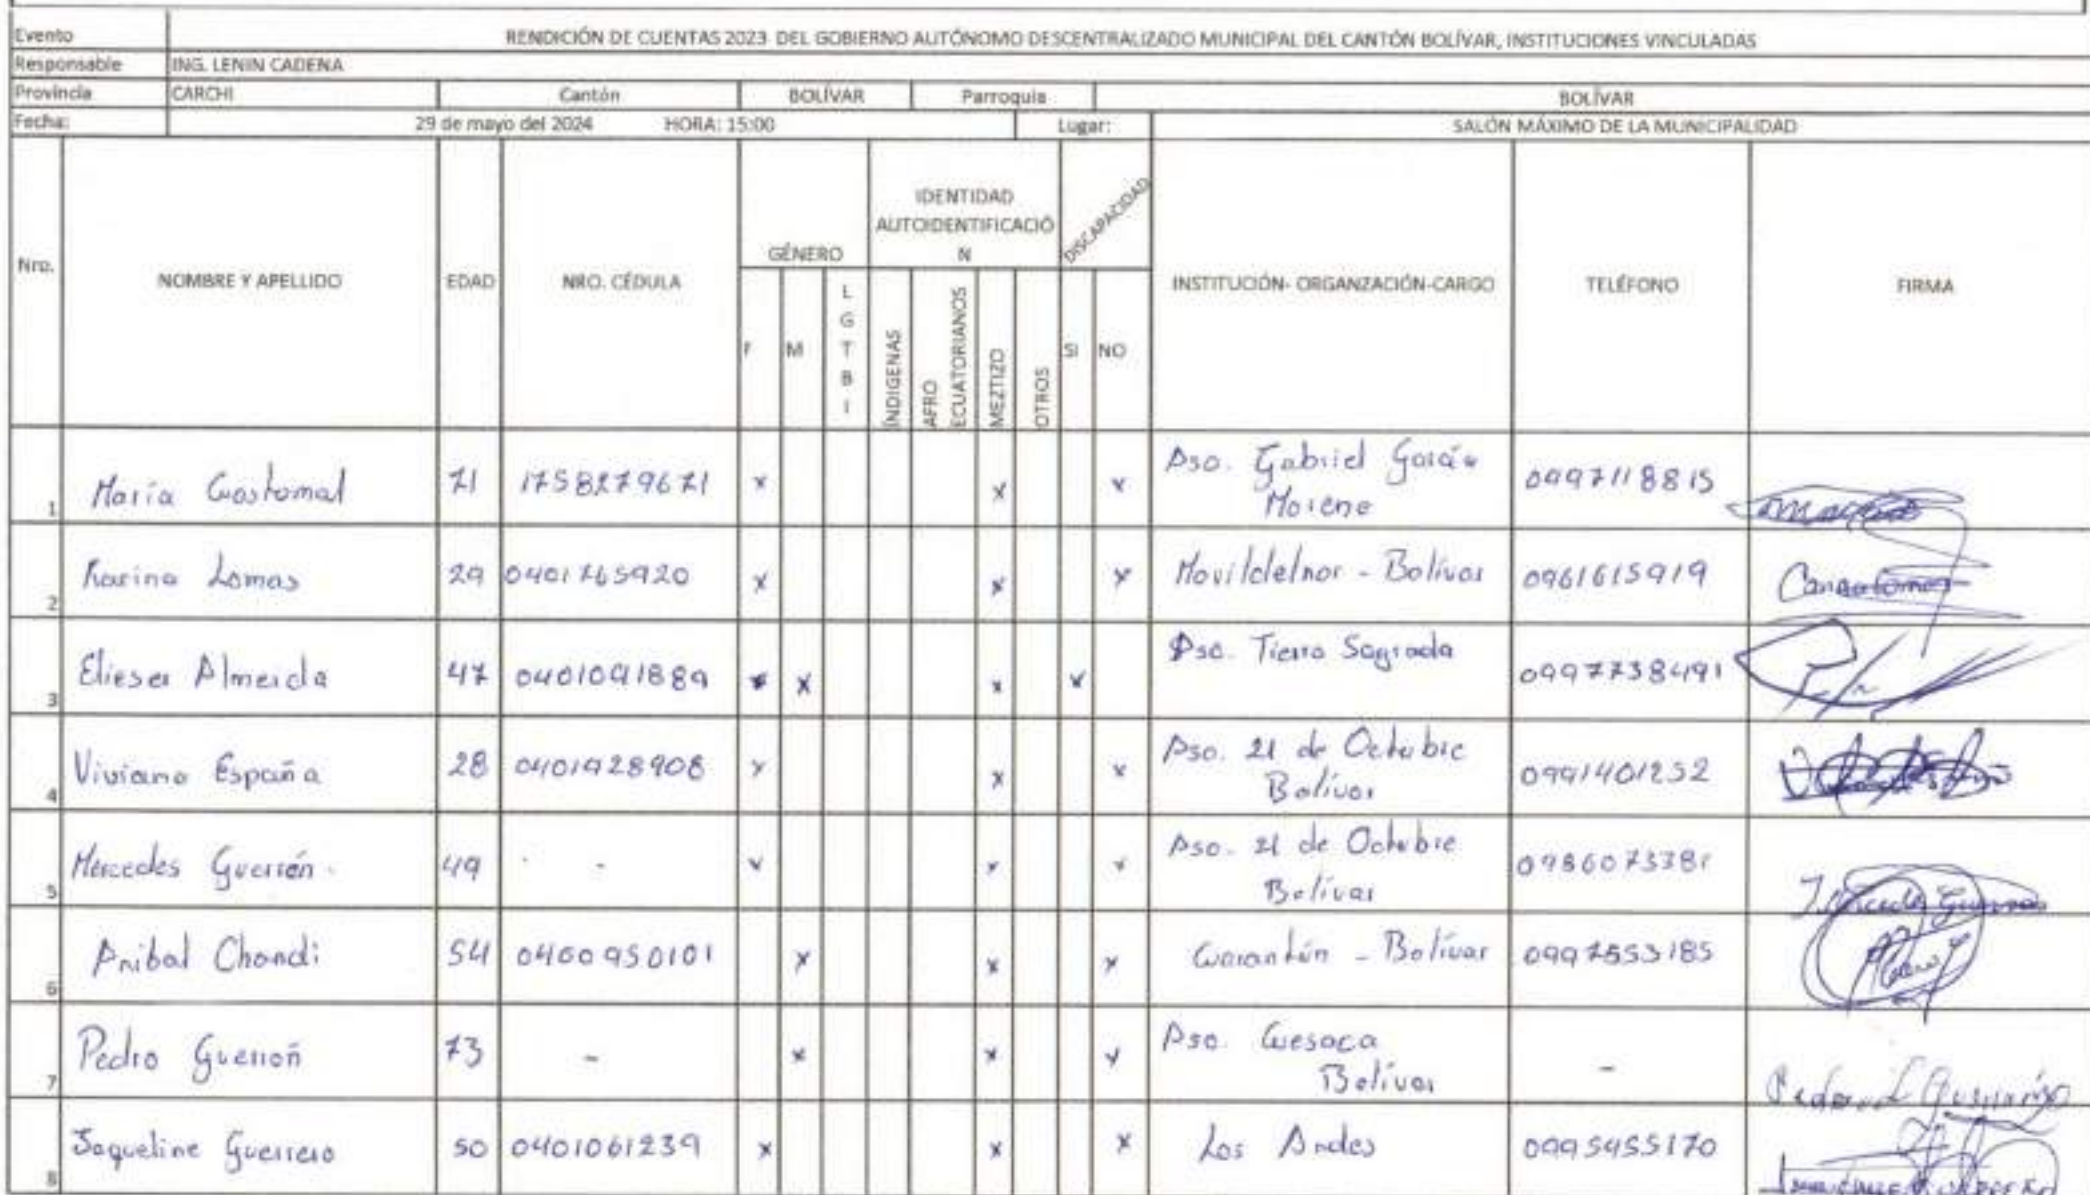 Evento RENDICIÓN DE CUENTAS 2023 DEL GOBIERNO AUTÓNOMO DESCENTRALIZADO MUNICIPAL DEL CANTÓN BOLÍVAR, INSTITUCIONES VINCULADAS
Responsable ING. LENIN CADENA
Provincia CARCHI Cantón BOLÍVAR Parroquia BOLÍVAR
Fecha: 29 de mayo del 2024 HORA: 15:00 Lugar: SALÓN MÁXIMO DE LA MUNICIPALIDAD
Nro. NOMBRE Y APELLIDO EDAD NRO. CÉDULA GÉNERO IDENTIDAD AUTOIDENTIFICACIÓN DISCAPACIDAD INSTITUCIÓN- ORGANZACIÓN-CARGO TELÉFONO FIRMA
F M LGTBI ÍNDIGENAS AFRO ECUATORIANOS MEZTIZO OTROS SI NO
1 María 71 1758279671 x x x Aso. Gabriel García Moreno 0997118815
2 Karina Lomas 29 0401765920 x x x Movildelnor - Bolívar 0961615919
3 Elieser Almeida 47 0401091889 x x x Aso. Tierra Sagrada 0997738491
4 Viviana España 28 0401928908 x x x Aso. 21 de Octubre Bolívar 0991401252
5 Mercedes Guerrón. 49 - - x x x Aso. 21 de Octubre Bolívar 0986073381
6 Anibal Chandi 54 0400950101 x x x Cuarantún - Bolívar 0997553185
7 Pedro Guerroñ 73 - x x x Aso. Cuesaca Bolívar -
8 Jaqueline Guerrero 50 0401061239 x x x Los Andes 0995955170